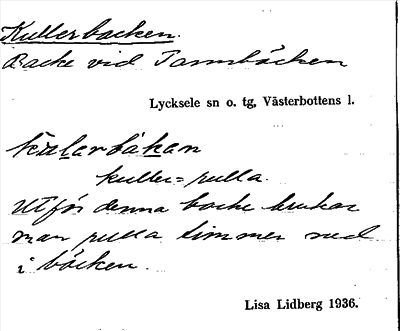 Kullerbacken.
Backe vid Tannbäcken
Lycksele sn o. tg, Västerbottens l.
kulla = rulla.
Utför denna backe brukar
man rulla timmer ned
i bäcken.
Lisa Lidberg 1936.